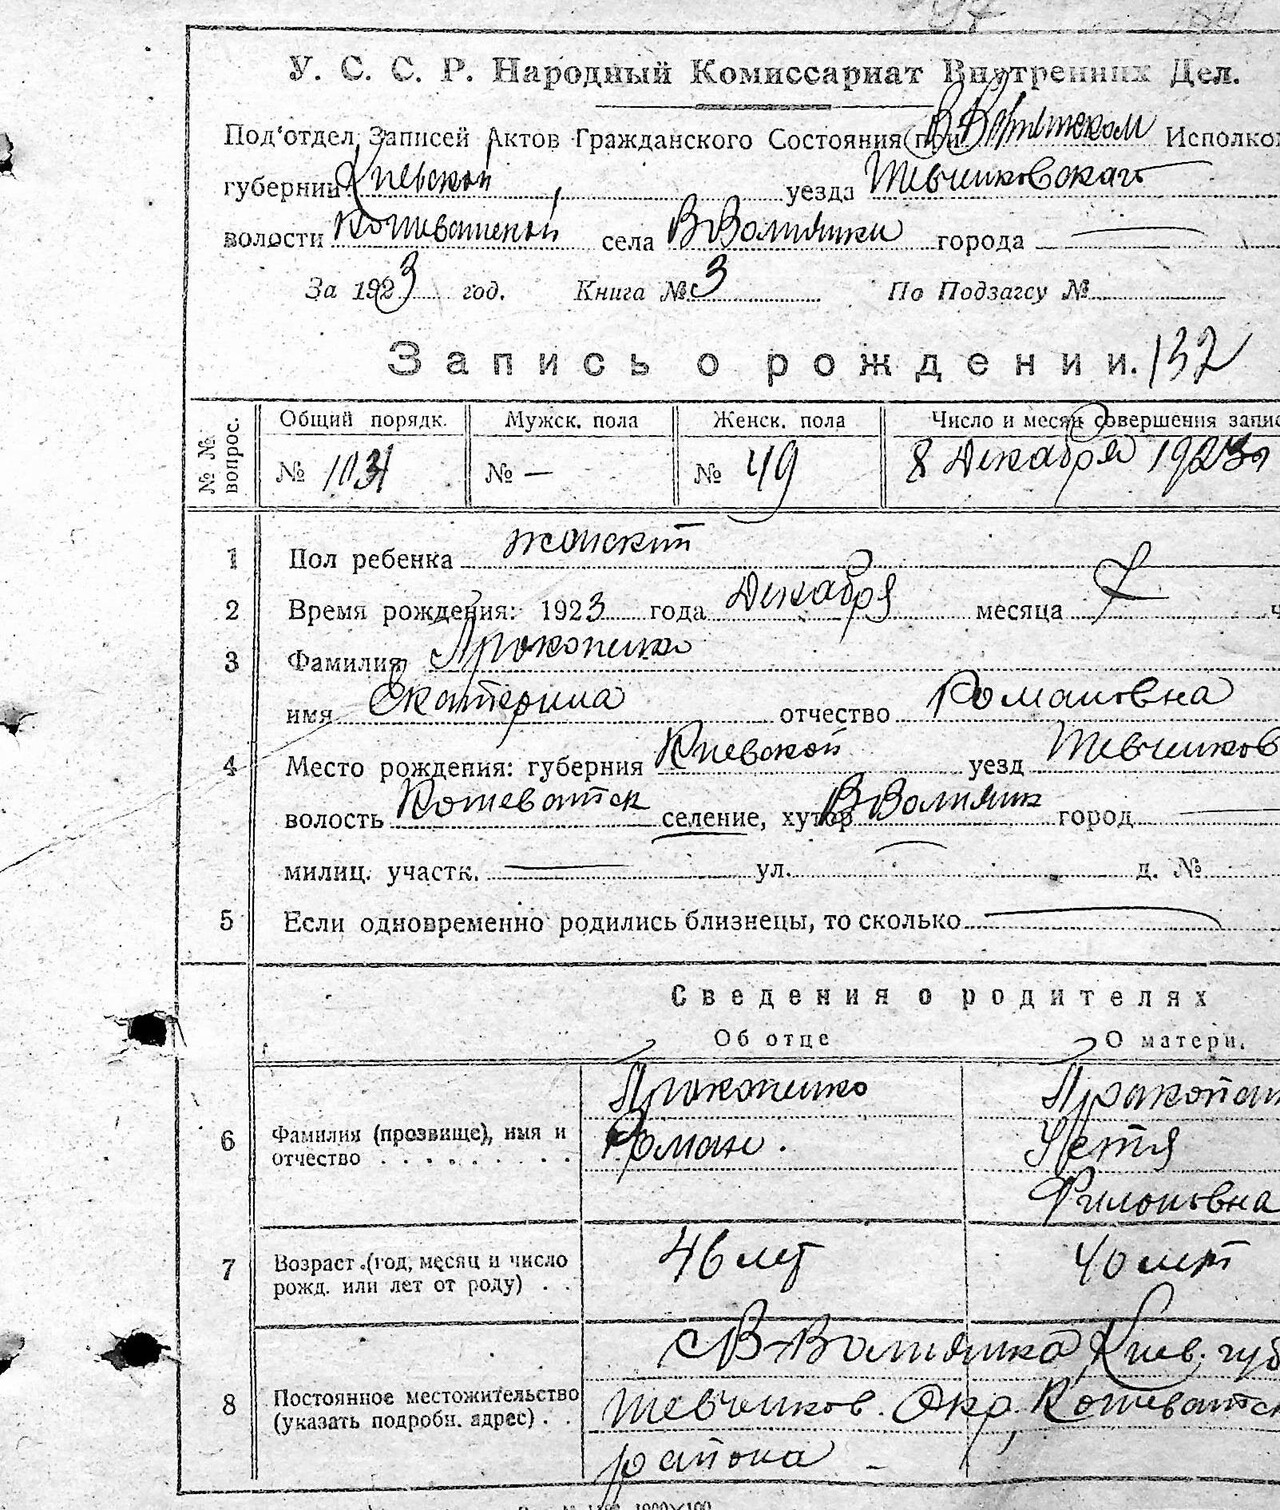 У. С. С. Р. Народный Комиссариат Внутренних Дел.
Под'отдел Записей Актов Гражданского Состояния при Исполко
губернии Киевской уезда Шевченковскаго
волости Кошеватской села В Волнянки города —
За 1923 год. Книга № 3 По Подзагсу №
Запись о рождении. 132
№ № вопрос. Общий порядк. Мужск. пола Женск. пола Число и месяц совершения запис
№ 103 № — № 49 8 Декабря 1923
1 Пол ребенка женский
2 Время рождения: 1923 года Декабря месяца 7 ч
3 Фамилия Прокопенко
имя Екатерина отчество Романовна
4 Место рождения: губерния Киевской уезд Шевченков
волость Кошеватск селение, хутор В Волнянк город —
милиц. участк. — ул. — д. №
5 Если одновременно родились близнецы, то сколько —
Сведения о родителях
Об отце О матери.
Прокопенко
6 Фамилия (прозвище), имя и отчество Роман.
Филиповна
7 Возраст (год, месяц и число рожд. или лет от роду) 46 лет 40 лет
В-Волнянка Киев. губ
8 Постоянное местожительство (указать подробн. адрес) Шевченков. Окр. Кошеватск
района